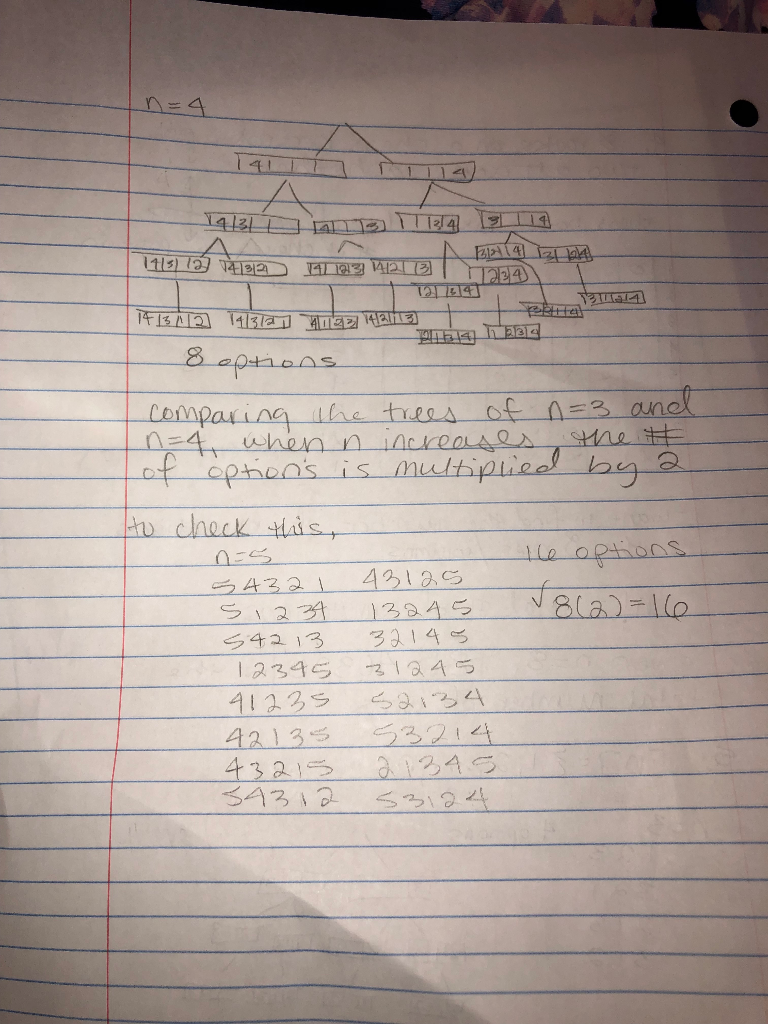 n=4
4
4
4 3
4 3
3 4
3 4
4 3 2
4 3 2
4 2 3
4 2 3
3 2 4
3 2 4
2 3 4
2 3 4
4 3 1 2
4 3 2 1
4 1 2 3
4 2 1 3
2 1 3 4
1 2 3 4
3 2 1 4
3 1 2 4
8 options
comparing the trees of n=3 and
n=4, when n increases, the #
of options is multiplied by 2
to check this,
n=5 16 options
54321 43125
51234 13245 √8(2)=16
54213 32145
12345 31245
41235 52134
42135 53214
43215 21345
54312 53124